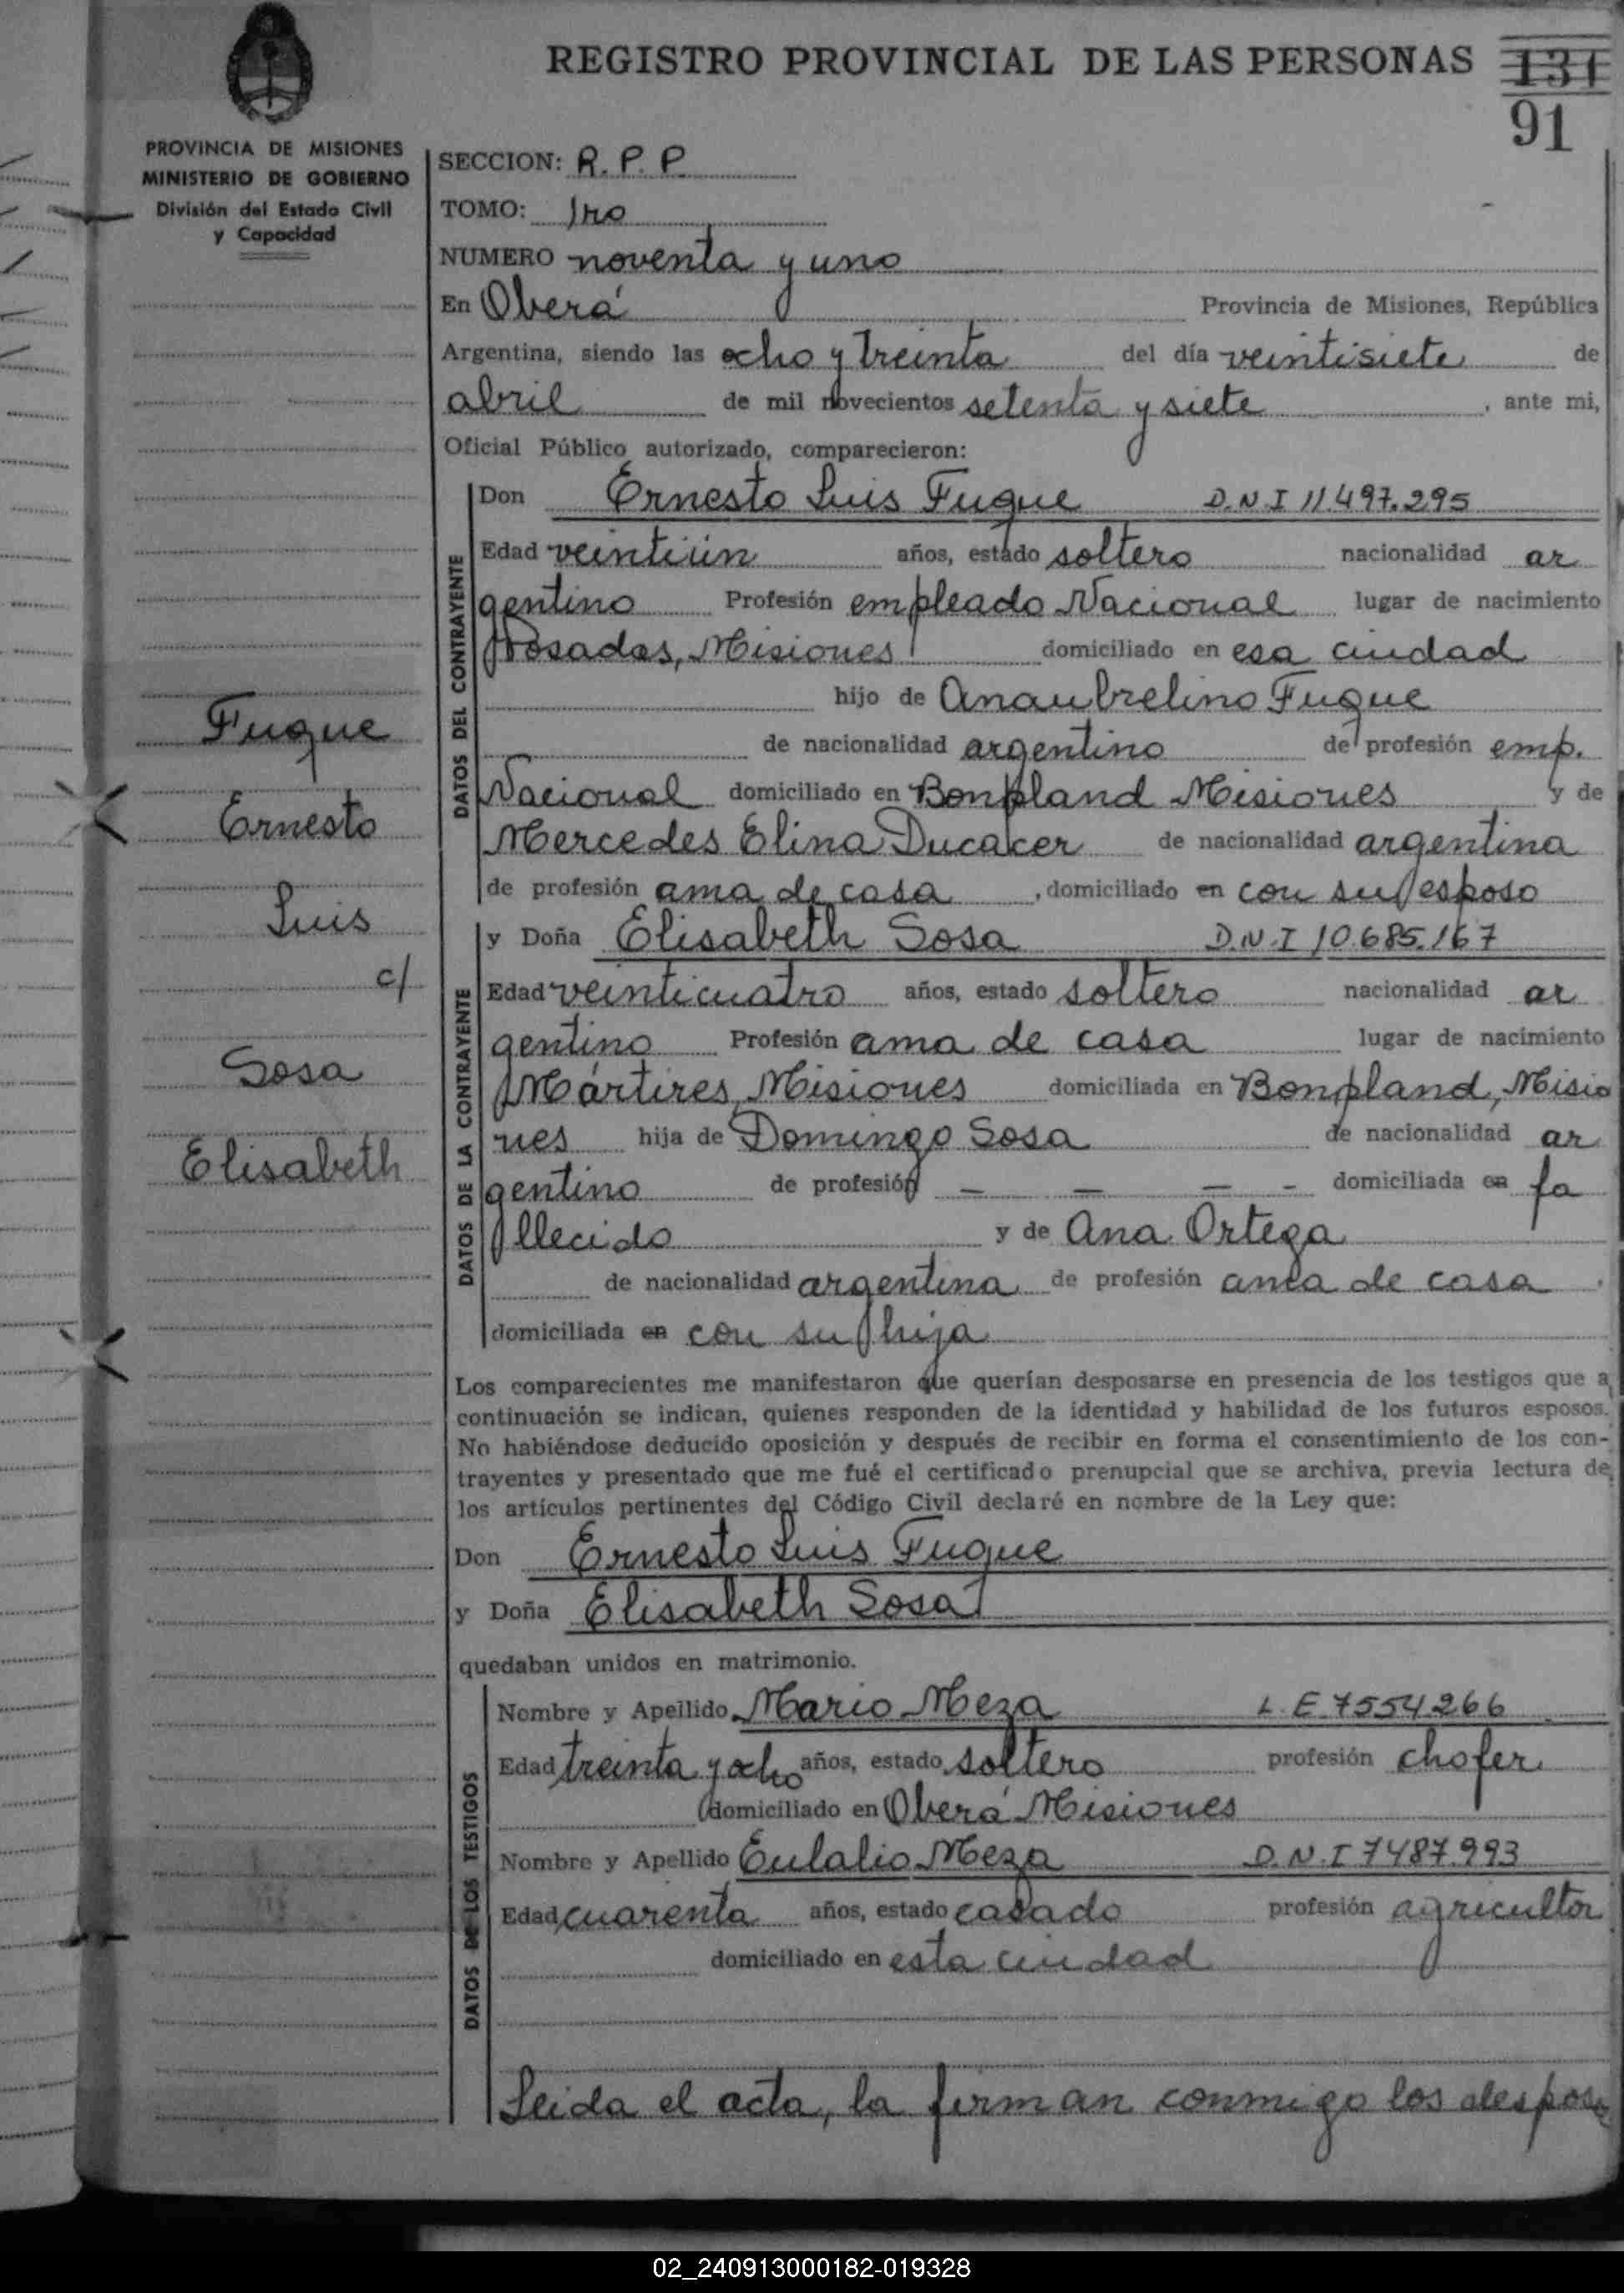 REGISTRO PROVINCIAL DE LAS PERSONAS
131
91
PROVINCIA DE MISIONES
MINISTERIO DE GOBIERNO
División del Estado Civil
y Capacidad
SECCION: R. P. P.
TOMO: 1ro
NUMERO noventa y uno
En Oberá Provincia de Misiones, República
Argentina, siendo las ocho y treinta del día veintisiete de
abril de mil novecientos setenta y siete, ante mi,
Oficial Público autorizado, comparecieron:
DATOS DEL CONTRAYENTE
Don Ernesto Luis Fuque D.N.I 11.497.295
Edad veintiún años, estado soltero nacionalidad ar
gentino Profesión empleado Nacional lugar de nacimiento
Posadas, Misiones domiciliado en esa ciudad
hijo de Anaubrelino Fuque
de nacionalidad argentino de profesión emp.
Nacional domiciliado en Bonpland Misiones y de
Mercedes Elina Ducacer de nacionalidad argentina
de profesión ama de casa, domiciliado en con su esposo
DATOS DE LA CONTRAYENTE
y Doña Elisabeth Sosa D.N.I 10.685.167
Edad veinticuatro años, estado soltero nacionalidad ar
gentino Profesión ama de casa lugar de nacimiento
Mártires, Misiones domiciliada en Bonpland, Misio
nes hija de Domingo Sosa de nacionalidad ar
gentino de profesión — — — - domiciliada en fa
llecido y de Ana Ortega
de nacionalidad argentina de profesión ama de casa.
domiciliada en con su hija
Fuque
Ernesto
Luis
c/
Sosa
Elisabeth
Los comparecientes me manifestaron que querían desposarse en presencia de los testigos que a
continuación se indican, quienes responden de la identidad y habilidad de los futuros esposos.
No habiéndose deducido oposición y después de recibir en forma el consentimiento de los con-
trayentes y presentado que me fué el certificado prenupcial que se archiva, previa lectura de
los artículos pertinentes del Código Civil declaré en nombre de la Ley que:
Don Ernesto Luis Fuque
y Doña Elisabeth Sosa
quedaban unidos en matrimonio.
DATOS DE LOS TESTIGOS
Nombre y Apellido Mario Meza L.E 7554266
Edad treinta y ocho años, estado soltero profesión chofer
domiciliado en Oberá Misiones
Nombre y Apellido Eulalio Meza D.N.I 7487.993
Edad cuarenta años, estado casado profesión agricultor
domiciliado en esta ciudad
Leida el acta, la firman conmigo los despos
02_240913000182-019328